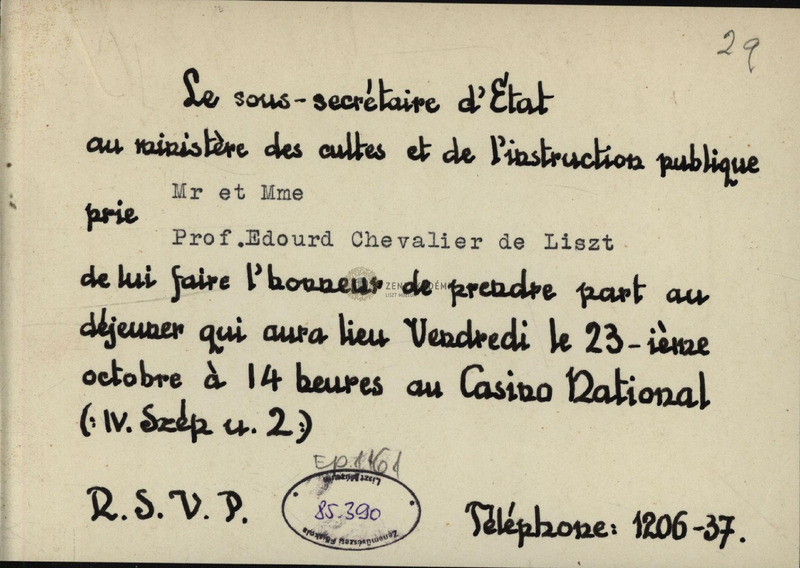 29
Le sous-secrétaire d'État
au ministère des cultes et de l'instruction publique
Mr et Mme
prie
Prof.Edourd Chevalier de Liszt
de lui faire l'honneur de prendre part au
déjeuner qui aura lieu Vendredi le 23-ième
octobre à 14 heures au Casino National
(: IV. Szép u. 2:)
Ep.1161
Liszt Múzeum
85.390
Zeneművészeti Főiskola
R. S. V. P.
Téléphone: 1206-37.